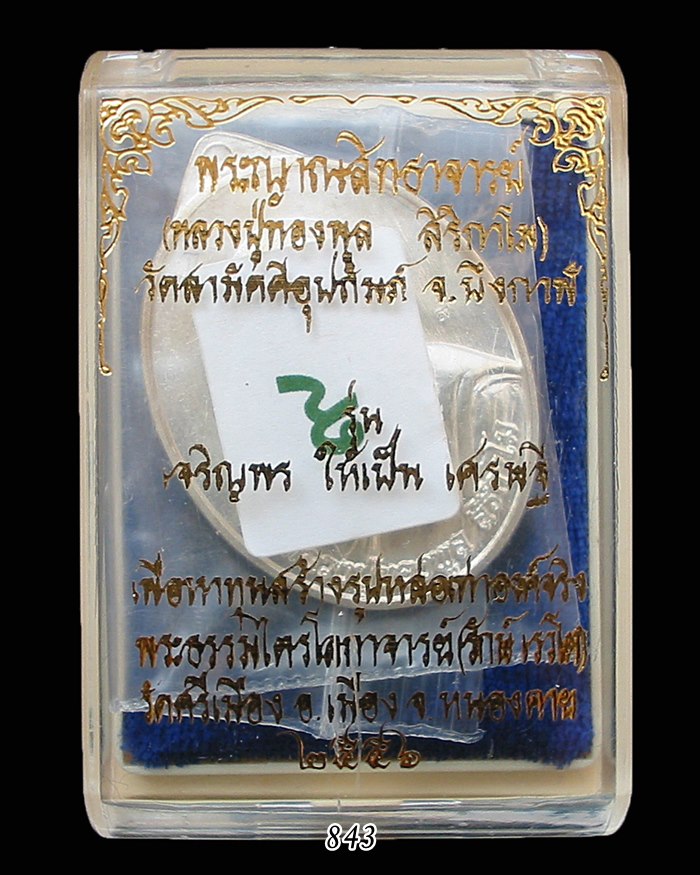 พระญาณสิทธาจารย์
(หลวงปู่ทองพูล สิริกาโม)
วัดสามัคคีอุปถัมภ์ จ.บึงกาฬ
รุ่น
เจริญพร ให้เป็น เศรษฐี
เพื่อหาทุนสร้างรูปหล่อเท่าองค์จริง
พระธรรมไตรโลกาจารย์(รักษ์ เรวโต)
วัดศรีเมือง อ.เมือง จ.หนองคาย
๒๕๕๖
843